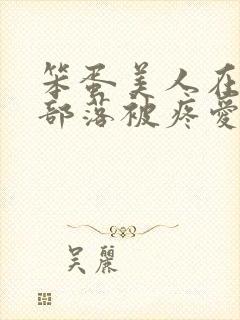 笨蛋美人在
部落被疼愛
吴麗